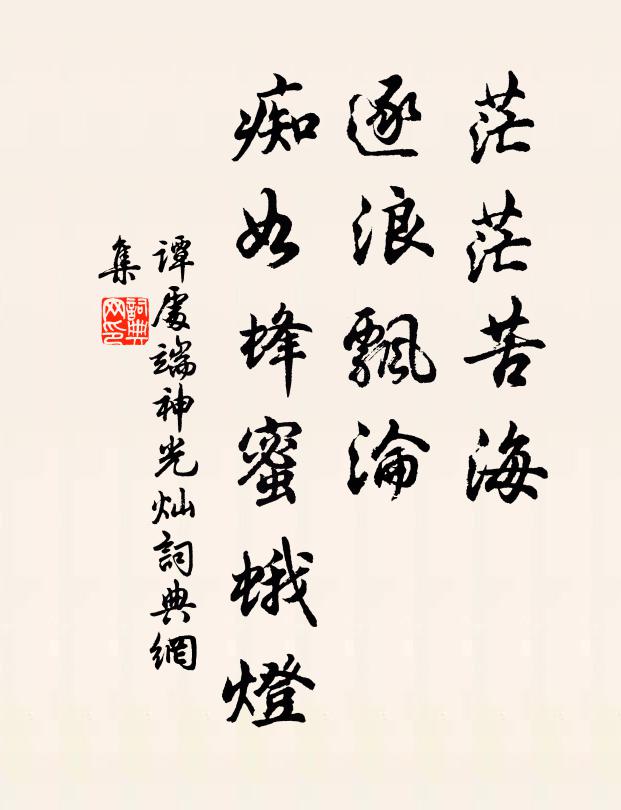 茫茫苦海
逐浪飄淪
痴如蜂蜜蛾燈
譚處端神光灿詞典網
集
詞典网印